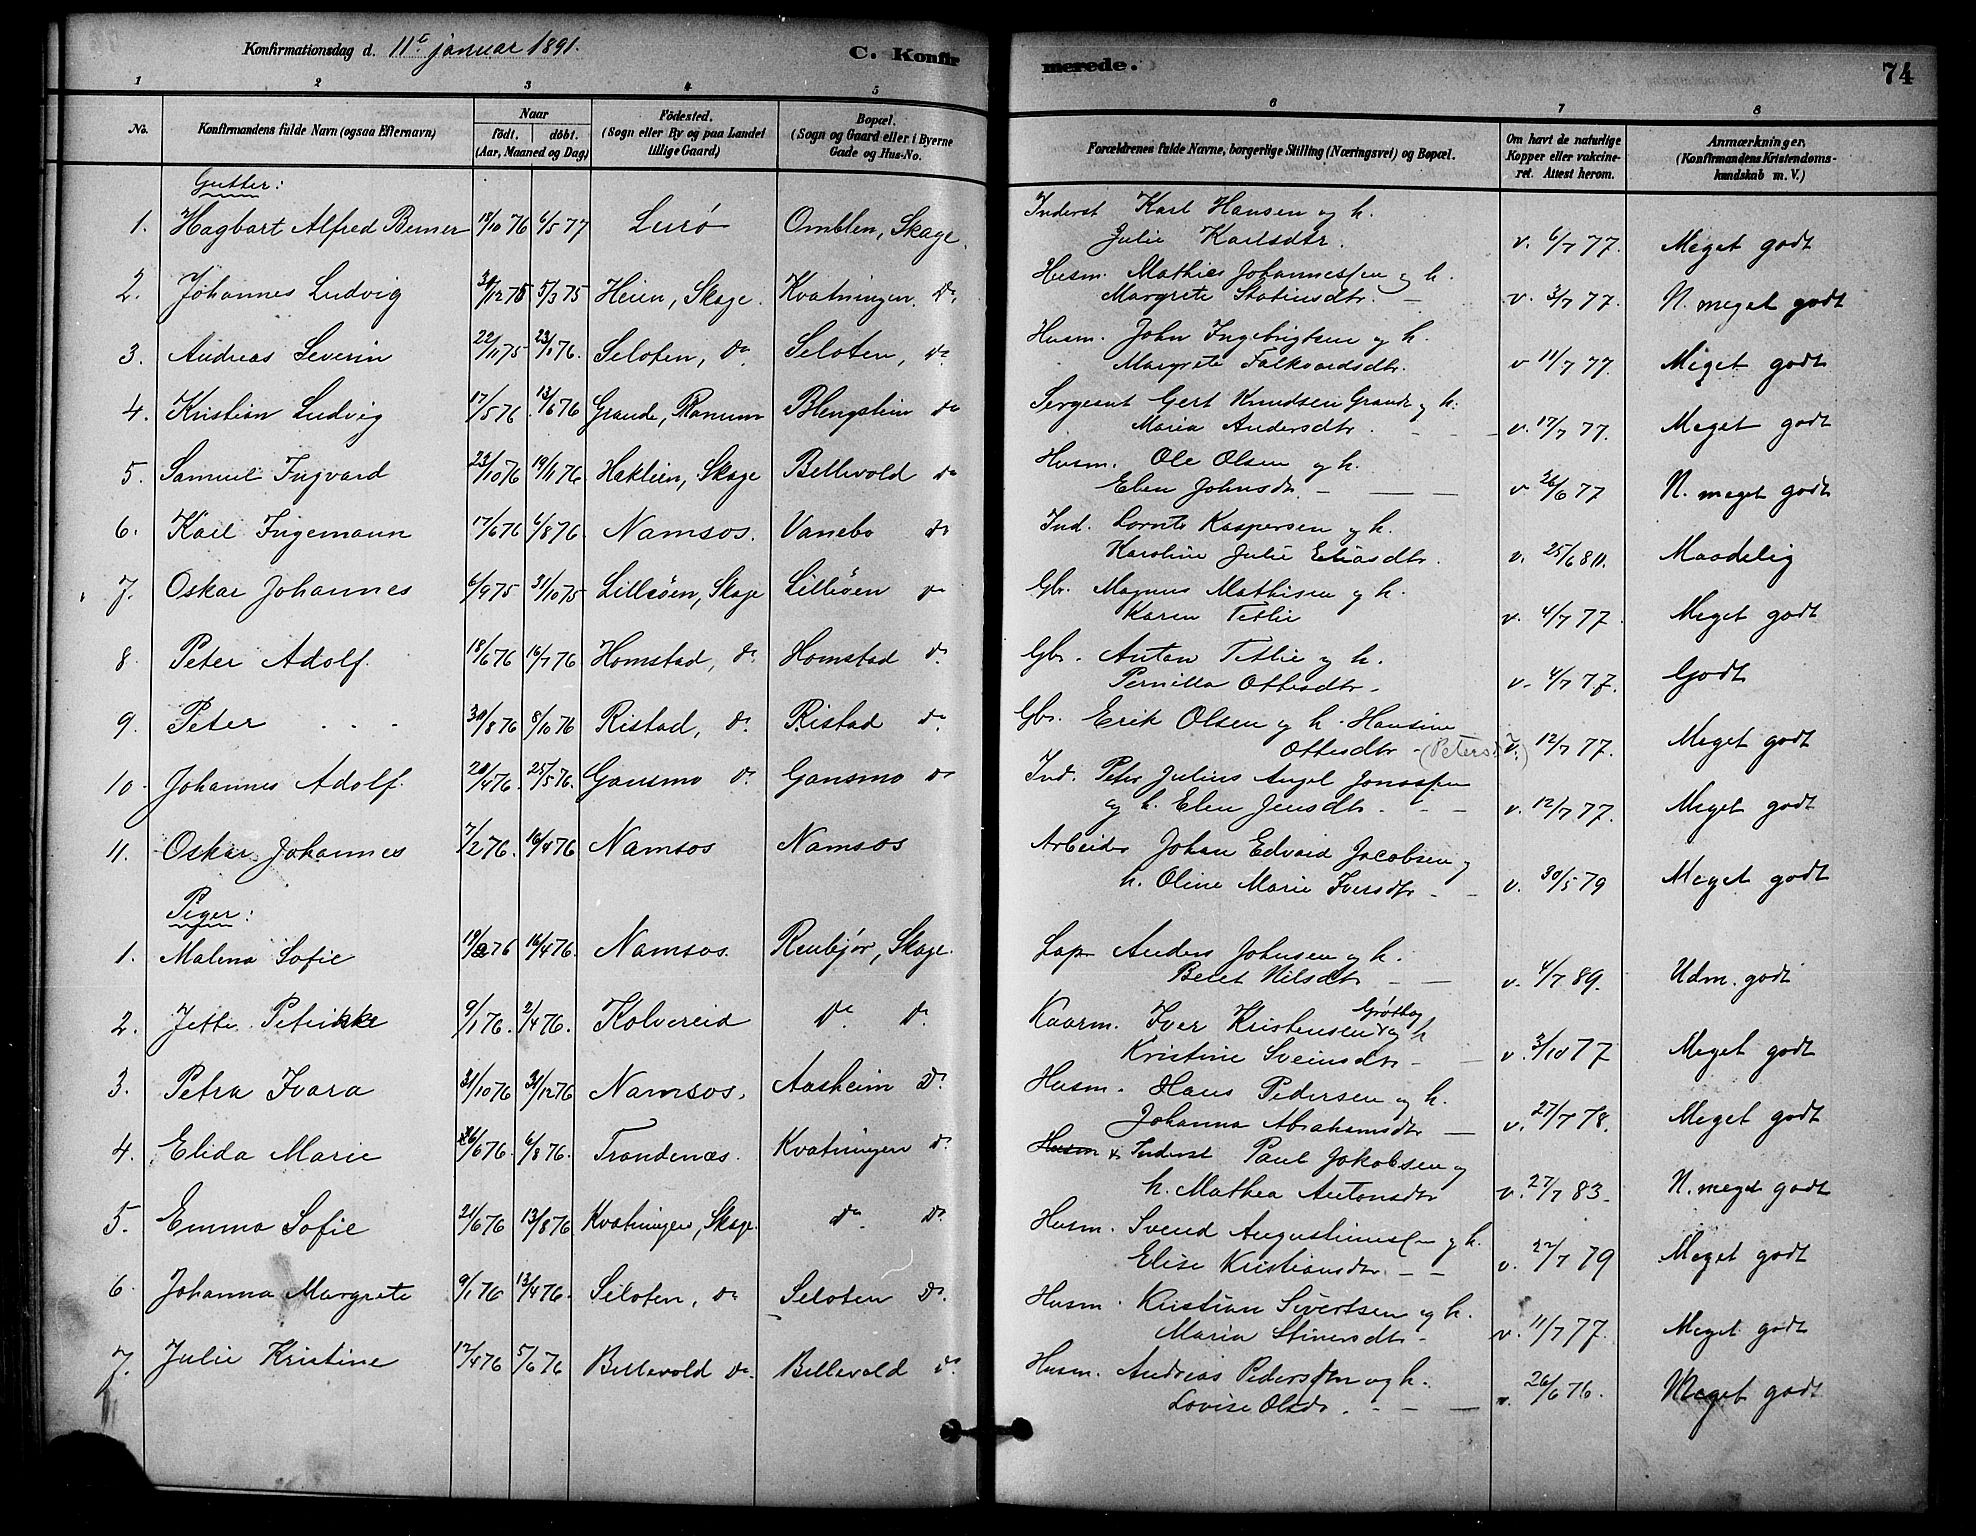 Konfirmationsdag d. 11te januar 1891.
C. Konfirmerede.
74
1 2 3 4 5 6 7 8
No.
Konfirmandens fulde Navn (ogsaa Efternavn)
Naar
födt. döbt.
(Aar, Maaned og Dag)
Födested.
(Sogn eller By og paa Landet
tillige Gaard)
Bopæl.
(Sogn og Gaard eller i Byerne
Gade og Hus-No.
Forældrenes fulde Navne, borgerlige Stilling (Næringsvei) og Bopæl.
Om havt de naturlige
Kopper eller vakcine-
ret. Attest herom.
Anmærkninger,
(Konfirmandens Kristendoms-
kundskab m. V.)
Gutter:
1. Hagbart Alfred Berner 18/10 76 6/5 77 Lurö Omblen, Skage. Inderst Karl Hansen og h.
Julie Karlsdtr. v. 6/7 77. Meget godt
2. Johannes Ludvig 5/3 75 Heien, Skage. Kvatningen do. Husm. Mathies Johannessen og h.
Margrete Statinsdtr. v. 3/7 77. N. meget godt
3. Andreas Severin 22/11 75 23/1 76. Seloten, do Seloten, do. Husm. John Ingebrigtsen og h.
Margrete Falkvardsdtr. v 11/7 77. Meget godt
4. Kristian Ludvig 17/5 76 13/6 76 Grande, Ranum Blengstein do Sergeant Gert Knudsen Grande og h.
Maria Andersdtr. v. 17/7 77. Meget godt
5. Samuel Ingvard 23/10 76 19/11 76 Haklien, Skage Bellevold do Husm. Ole Olsen og h.
Elen Johnsdtr. v 26/6 77 N. meget godt
6. Karl Ingemann 17/6 76 6/8 76. Namsos. Vanebo do Ind. Lornts Kaspersen og h.
Karoline Julie Eliasdtr. v. 25/6 80. Maadelig
7. Oskar Johannes 6/9 75 31/10 75 Lilleöen, Skage Lilleöen do Gbr. Magnus Mathisen og h.
Karen Tetlie v. 4/7 77. Meget godt
8. Peter Adolf. 18/6 76 16/7 76 Homstad, do. Homstad do. Gbr. Anton Tetlie og h.
Pernilla Ottesdtr. v. 4/7 77. Godt
9. Peter 30/8 76 8/10 76 Ristad, do. Ristad do. Gbr. Erik Olsen og h. Hansine
Ottesdtr. (Petersd.) v. 12/7 77. Meget godt
10. Johannes Adolf. 20/4 76. 25/5 76. Gansmo do. Gansmo do Ind. Peter Julius Angel Jonassen
og h. Elen Jensdtr. v. 12/7 77. Meget godt
11. Oskar Johannes 7/2 76. 16/4 76 Namsos Namsos Arbeider Johan Edvard Jacobsen og
h. Oline Marie Iversdtr. v. 30/5 79 Meget godt
Piger:
1. Malena Sofie 19/2 76 16/4 76. Namsos. Renbjör, Skage. Lap Anders Johnsen og h.
Beret Nilsdtr v. 4/7 89. Udm. godt
2. Jette Petrikke 9/1 76. 2/4 76. Kolvereid do. do. Kaarm. Iver Kristensen Grötby og h
Kristine Sveinsdtr. v. 3/10 77 Meget godt
3. Petra Ivara 31/10 76 31/12 76 Namsos. Aasheim do. Husm. Hans Pedersen og h.
Johanna Abrahamsdtr v. 27/7 78. Meget godt
4. Elida Marie 26/6 76. 6/8 76. Trondenæs. Kvatningen do. Husm Inderst Paul Jakobsen og
h. Mathea Antonsdtr v. 27/7 83. N. meget godt
5. Emma Sofie 21/6 76 13/8 76 Kvatningen, Skage. do. do. Husm. Svend Augustinussen og h.
Elise Kristiansdtr. v. 22/7 79 Meget godt
6. Johanna Margrete 9/1 76 13/4 76. Seloten, do Seloten do. Husm. Kristian Sivertsen og h.
Maria Stinersdtr. v. 11/7 77. Meget godt
7. Julie Kristine 12/4 76 5/6 76 Bellevold do. Bellevold do Husm. Andreas Pedersen og h.
Lovise Olsdr. v. 26/6 76. Meget godt